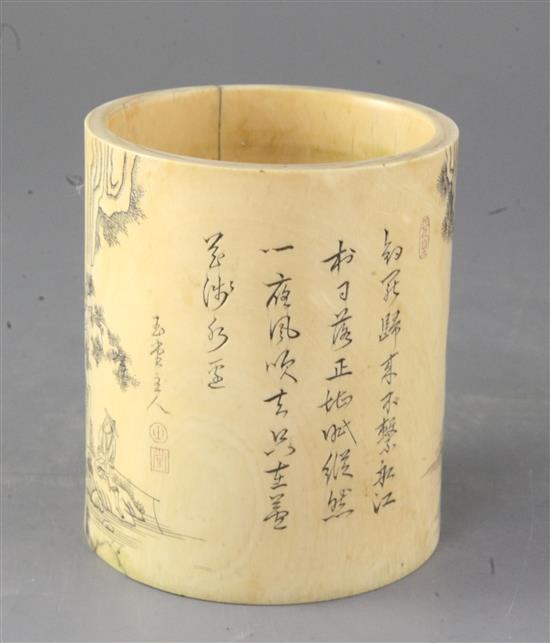 釣罷歸來不繫船江
村月落正堪眠縱然
一夜風吹去只在蘆
花淺水邊
玉堂主人